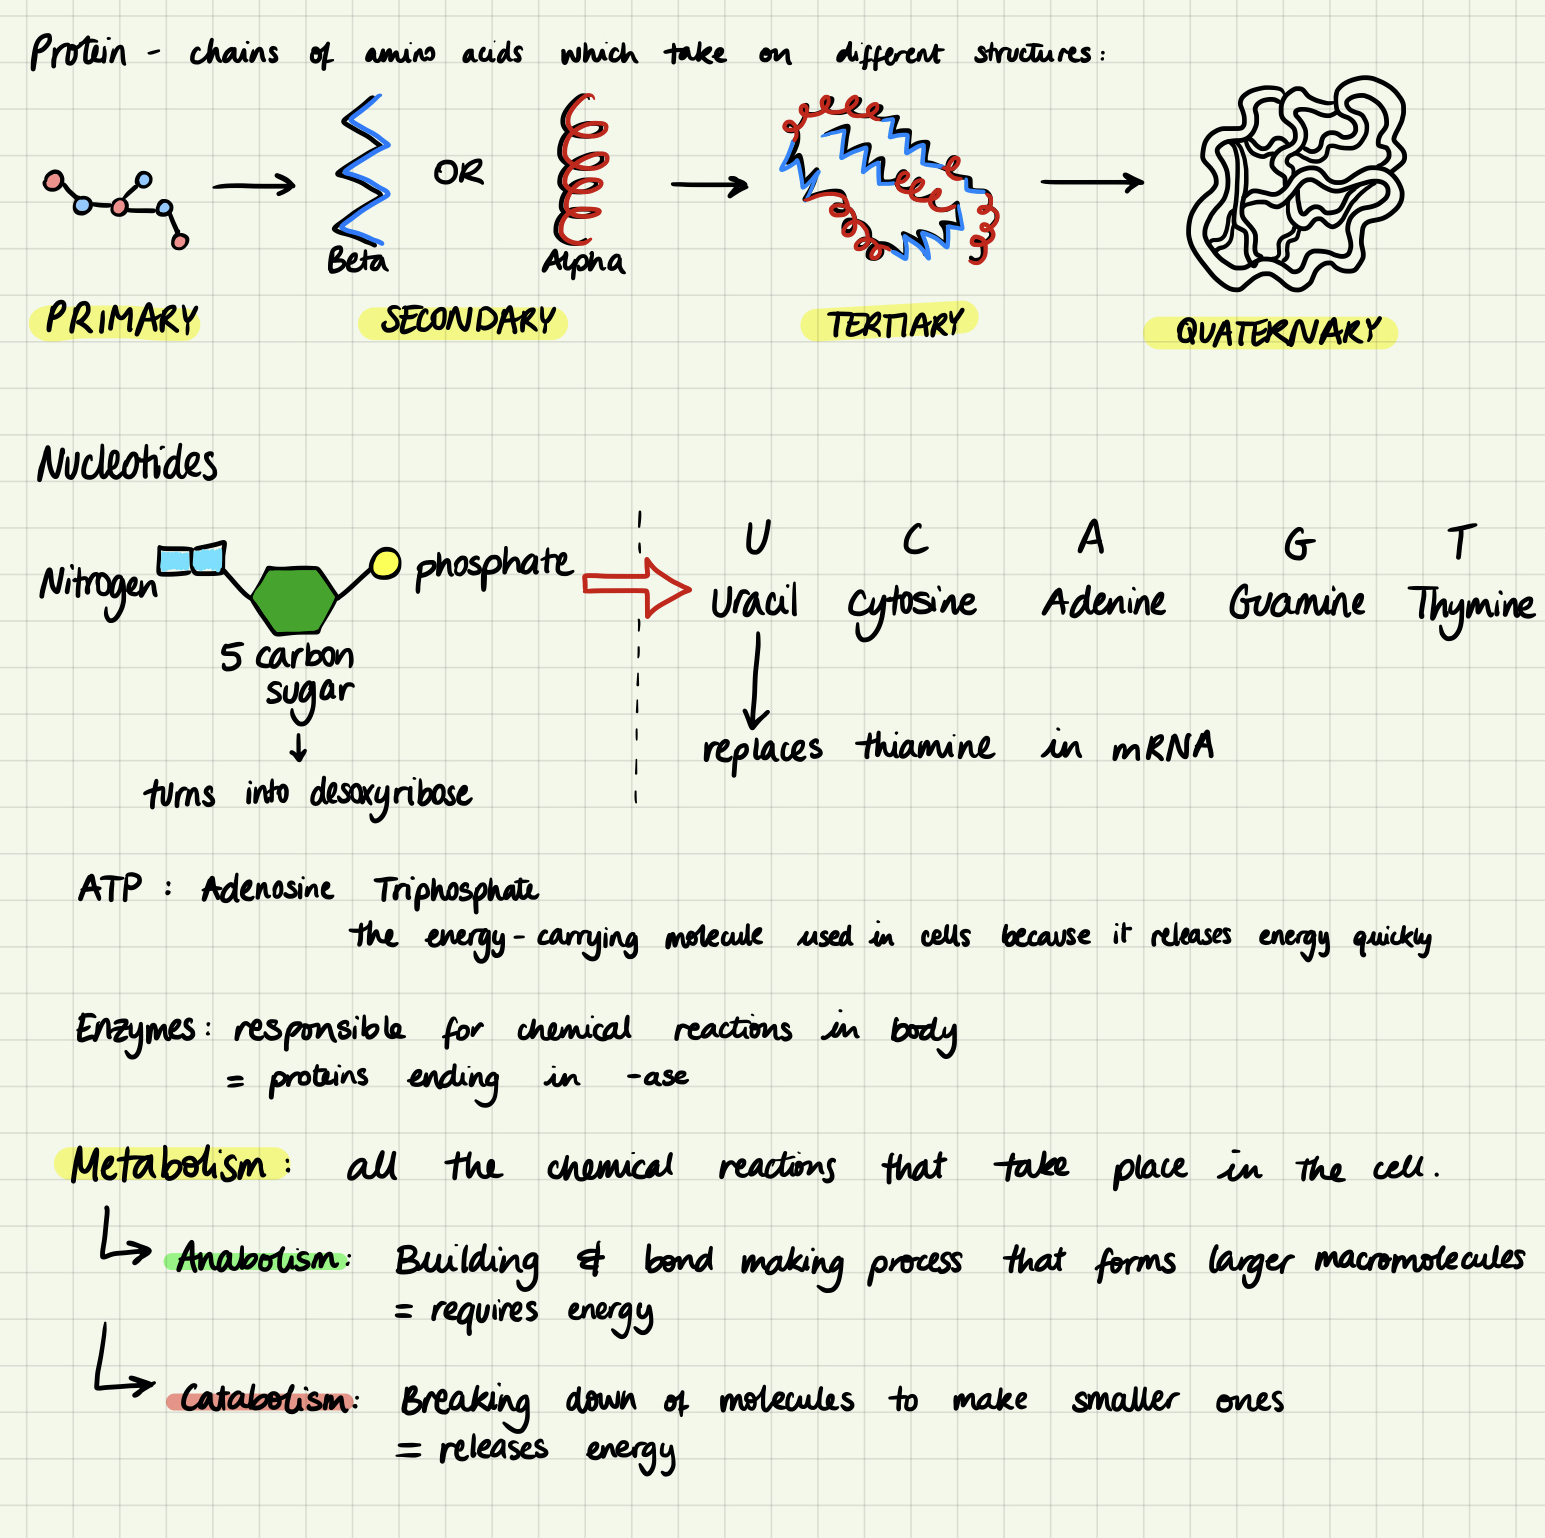 Protein - chains of amino acids which take on different structures:
OR
Beta
Alpha
PRIMARY
SECONDARY
TERTIARY
QUATERNARY
Nucleotides
U C A G T
Nitrogen
phosphate
Uracil Cytosine Adenine Guamine Thymine
5 carbon
sugar
replaces thiamine in mRNA
turns into desoxyribase
ATP : Adenosine Triphosphate
the energy-carrying molecule used in cells because it releases energy quickly
Enzymes: responsible for chemical reactions in body
= proteins ending in -ase
Metabolism: all the chemical reactions that take place in the cell.
Anabolism: Building & bond making process that forms larger macromolecules
= requires energy
Catabolism: Breaking down of molecules to make smaller ones
= releases energy